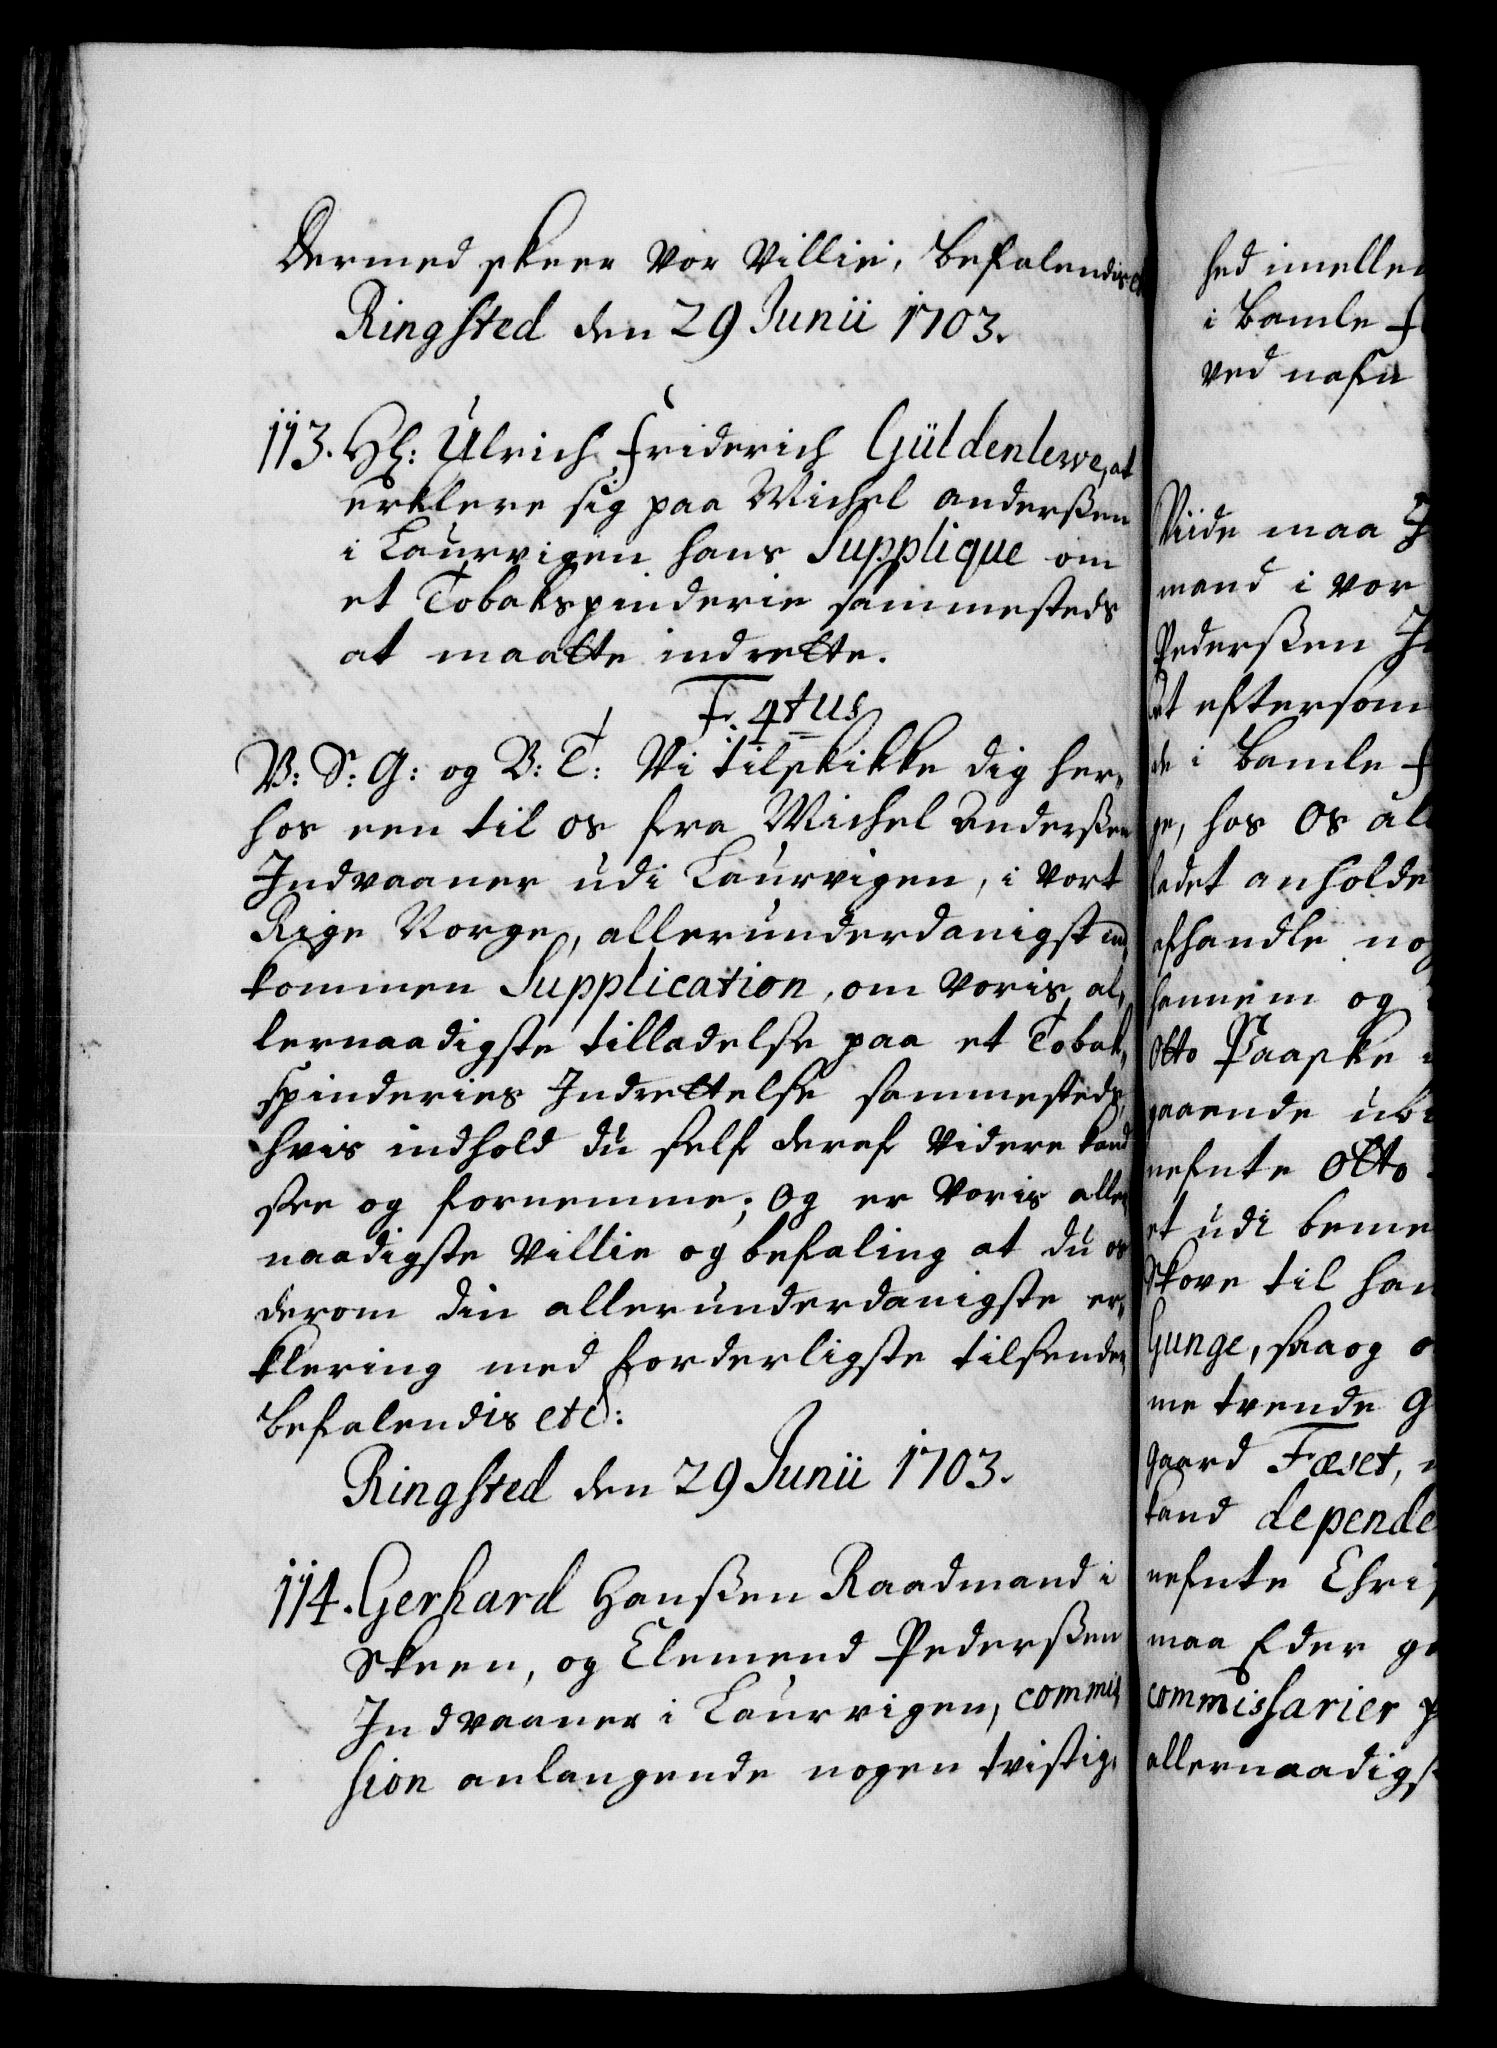 Dermed skeer vor Villie, Befalendis
Ringsted den 29 Junii 1703.
113. Hl: Ulrich Friderich Güldenlewe, at
erklere sig paa Michel anderßen
i Laurvigen hans Supplique om
et Tobakspinderie sammesteds
at maatte indrette.
F. 4tus
V: S: G: og V: T: Vi tilskikke dig her,
hos een til os fra Michel Anderßen
Indvaaner udi Laurvigen, i vort
Rige Norge, allerunderdanigst ind,
kommen Supplication, om voris al,
lernaadigste tilladelse paa et Tobak,
spinderies Indrettelse sammesteds,
hvis indhold du self deraf videre kand
see og fornemme; Og er Voris aller
naadigste Villie og befaling at du os
derom din allerunderdanigste er,
klering med forderligste tilsender,
Befalendis etc:
Ringsted den 29 Junii 1703.
114. Gerhard Hanßen Raadmand i
Skeen, og Clemend Pederßen
Indvaaner i Laurvigen, commis
sion anlangende nogen tvistig,
hed imellem
i Bamle f
ved nafn
Viide maa
mand i vor
Pederßen
At eftersom
de i Bamle f
ge, hos Os al
ladet anholde
afhandle no
hannem og
Otto Paaske
gaaende ube
nefnte Otto
et udi beme
Skove til han
Gunge, saa og o
me tvende G
gaard Fæset,
kand depende
nefnte Chri
maa Eder g
commissarier p
allernaadigs